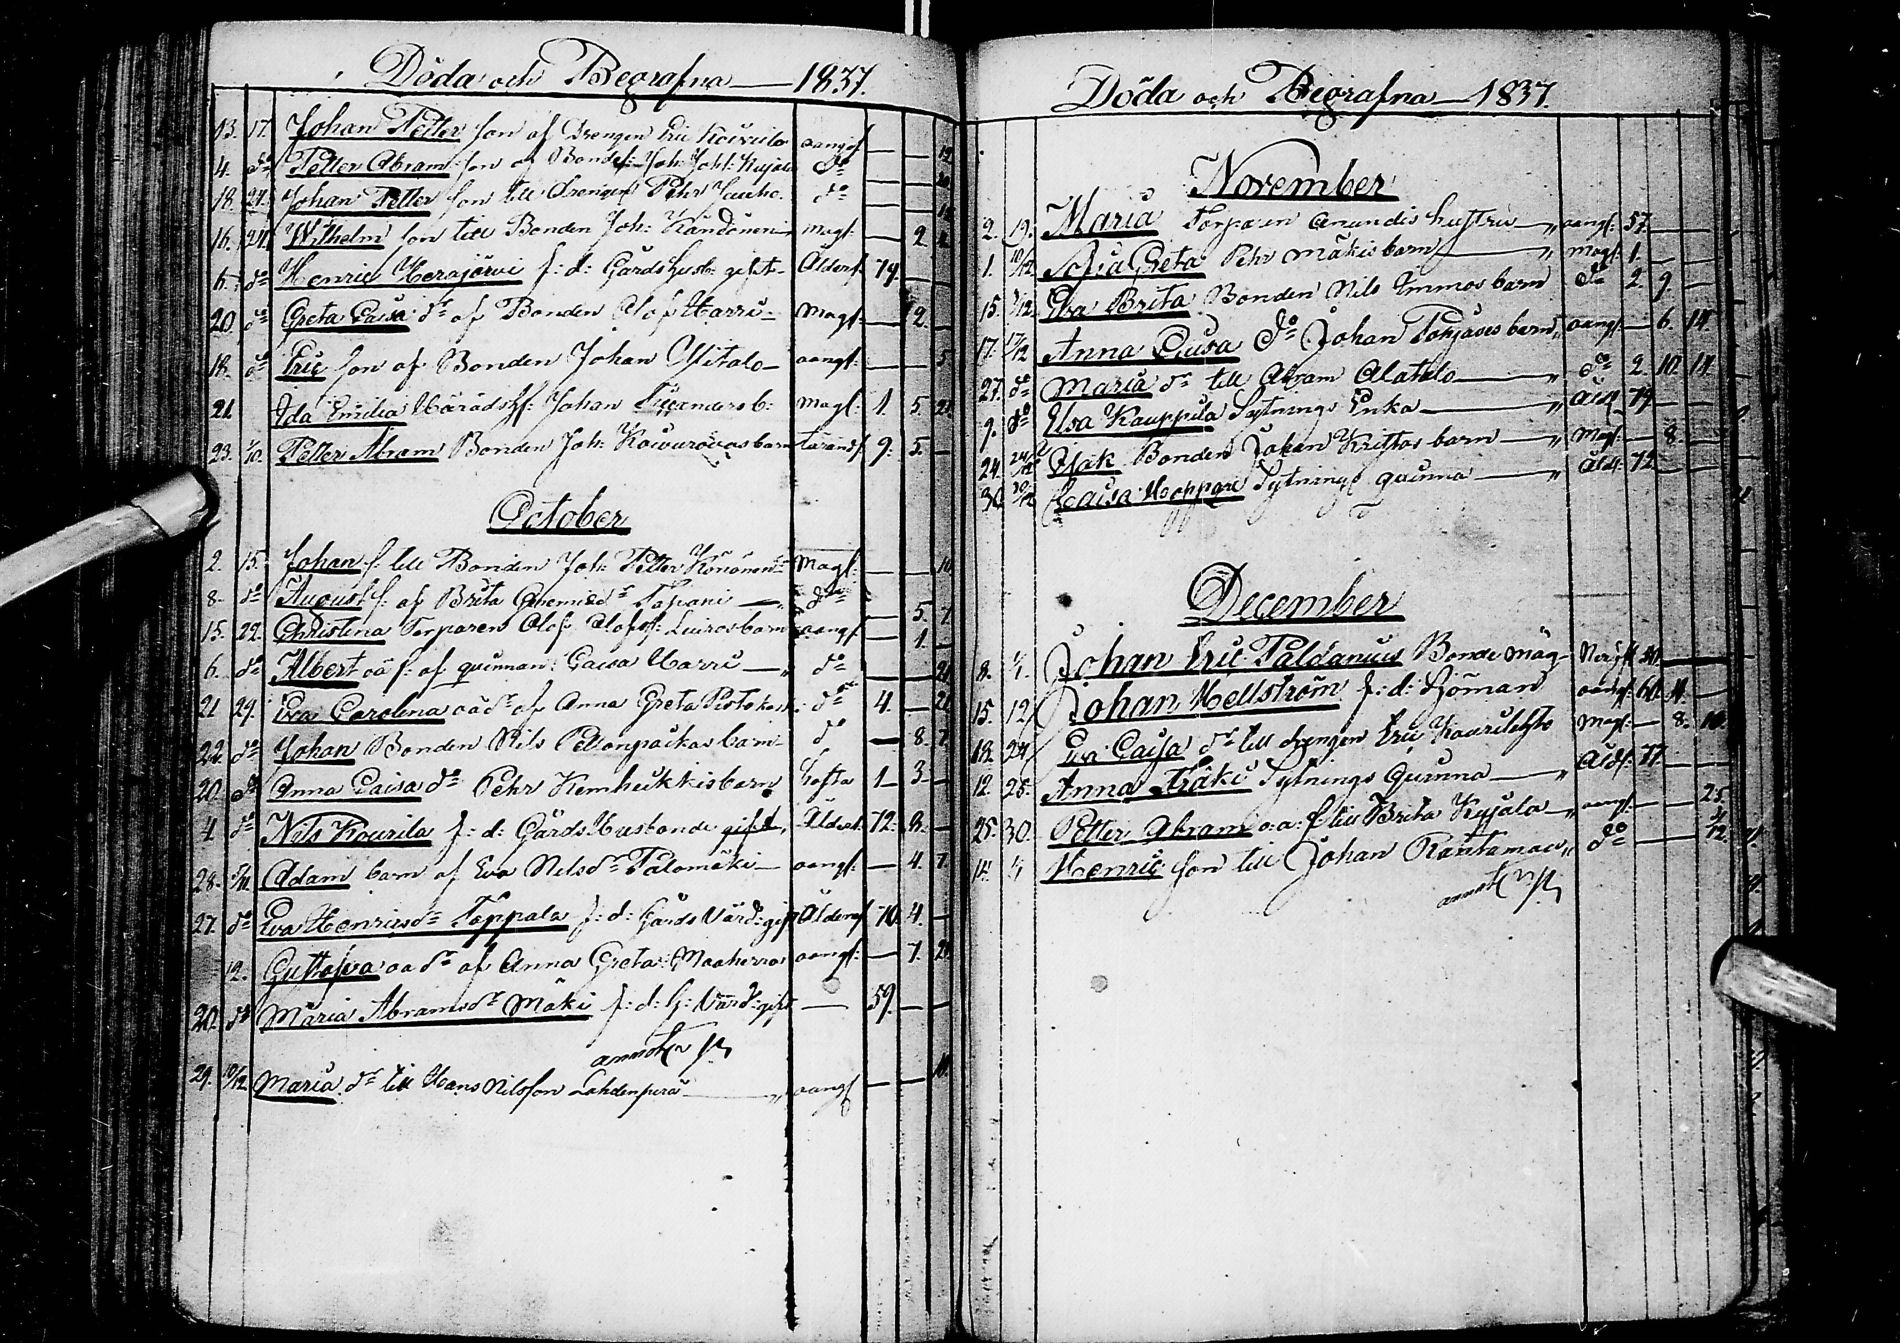 Döda och Begrafna — 1837.
13. 17. Johan Petter son af Drengen Eric Kourila oangif — — 19
4. do Petter Abram son af Bonden Joh: Joh: Kujala do — —
18. 24. Johan Petter son till Drengen Pehr Jauho. do — —
16. 24. Wilhelm son till Bonden Joh: Kandonen magf: — 2.
6. do Henric Herajärvi f: d: Gårdshusb: gift Ålderf 74. —
20. do Greta Caisa dr af Bonden Olof Harri Magf: — 2. —
18. do Eric son af Bonden Johan Ylitalo oangf: — — 5
21. Ida Emilia Häradshf: Johan magf: 1. 5. 21
23. 1/10. Petter Abram Bonden Joh: barn 9. 5. —
October
2. 15. Johan s: till Bonden Joh: Petter Könönen Magf: — — 10
8. do August s: af Brita dr Tapani — do 5. 7
15. 22. Christina Torparen Olof Olofss: Luiros barn oangf: — 1. —
6. do Albert oä s: af quinnan Caisa Harri — do — — 21
21 29. Eva Carolina oä dr af Anna Greta do 4. — 21
22. do Johan Bonden Nils Peltonpäikas barn do — 8. 7
20. do Anna Caisa do Pehr Kemheikkis barn hofta 1 3 —
4 do Nils Kourila f: d: Gårds Husbonde gift, 72. 8. —
28. 5/11. Adam barn af Eva Nilsdr Palomäki — oangf: — 4. 7.
27. do Eva Henricsdr Toppala f: d: Gårds Värd: gift Ålderf 70. 4. —
12. Gustafva oa dr af Anna Greta Maaherra oangf: — 7. 21
20. do Maria Abramsdr Mäki f: d: G: Värd: gift — 59. — —
29. 10/12. Maria dr till Hans Nilsson Lahdenperä — „ oangf — — 11.
Döda och Begrafna — 1837.
November
2. 19. Maria Torparen hustru — „ oangf: 57. — —
1. 10/12 Sofia Greta Pehr Mäkis barn — „ magf: 1. — —
15. /12. Eva Brita Bonden Nils Immos barn do 2. 9. —
17. 17/12 Anna Lovisa do Johan barn „ oangf: — 6. 14.
27. do Maria dr till Abram Alatalo — „ do 2 10. 14.
9. do Elsa Kauppila Sytnings Enka — „ Åld: 79 — —
24. /12 Isak Bonden Johan barn — „ Magf: — 8 —
30. /12 Caisa Hoppari Sytnings quinna — „ Åld: 72. —
December
8. Johan Eric Paldanius Bonde måg —
15. 12/ Johan Hellström f: d: Sjöman oangf: 60. 11. —
18. 24/ Eva Caisa dr till drengen Eric magf: — 8. 10.
12. 25. Anna Träki Sytnings Quinna — „ Åldf: 77. —
25. 30. Petter Abram o: a: s till Brita Kujala — „ oangf: — — 25.
14. Henric son till Johan Rautamaa „ do — —